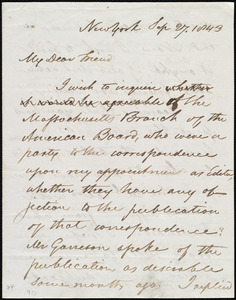 New York Sep 27, 1843
My Dear Friend
I wish to inquire whether
it would be agreeable of the
Massachusetts Branch of the
American Board, who were a
party to the correspondence
upon my appointment as Editor
whether they have any ob-
jection to the publication
of that correspondence?
Mr Garrison spoke of the
publication as desirable
some months ago. I replied